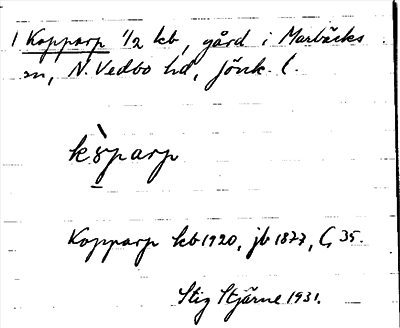 1 Kopparp 1/2 kb, gård i Marbäcks
sn, N. Vedbo hd, Jönk. l.
Kopparp kb 1920, jb 1877, C, 35.
Stig Stjärne 1931.